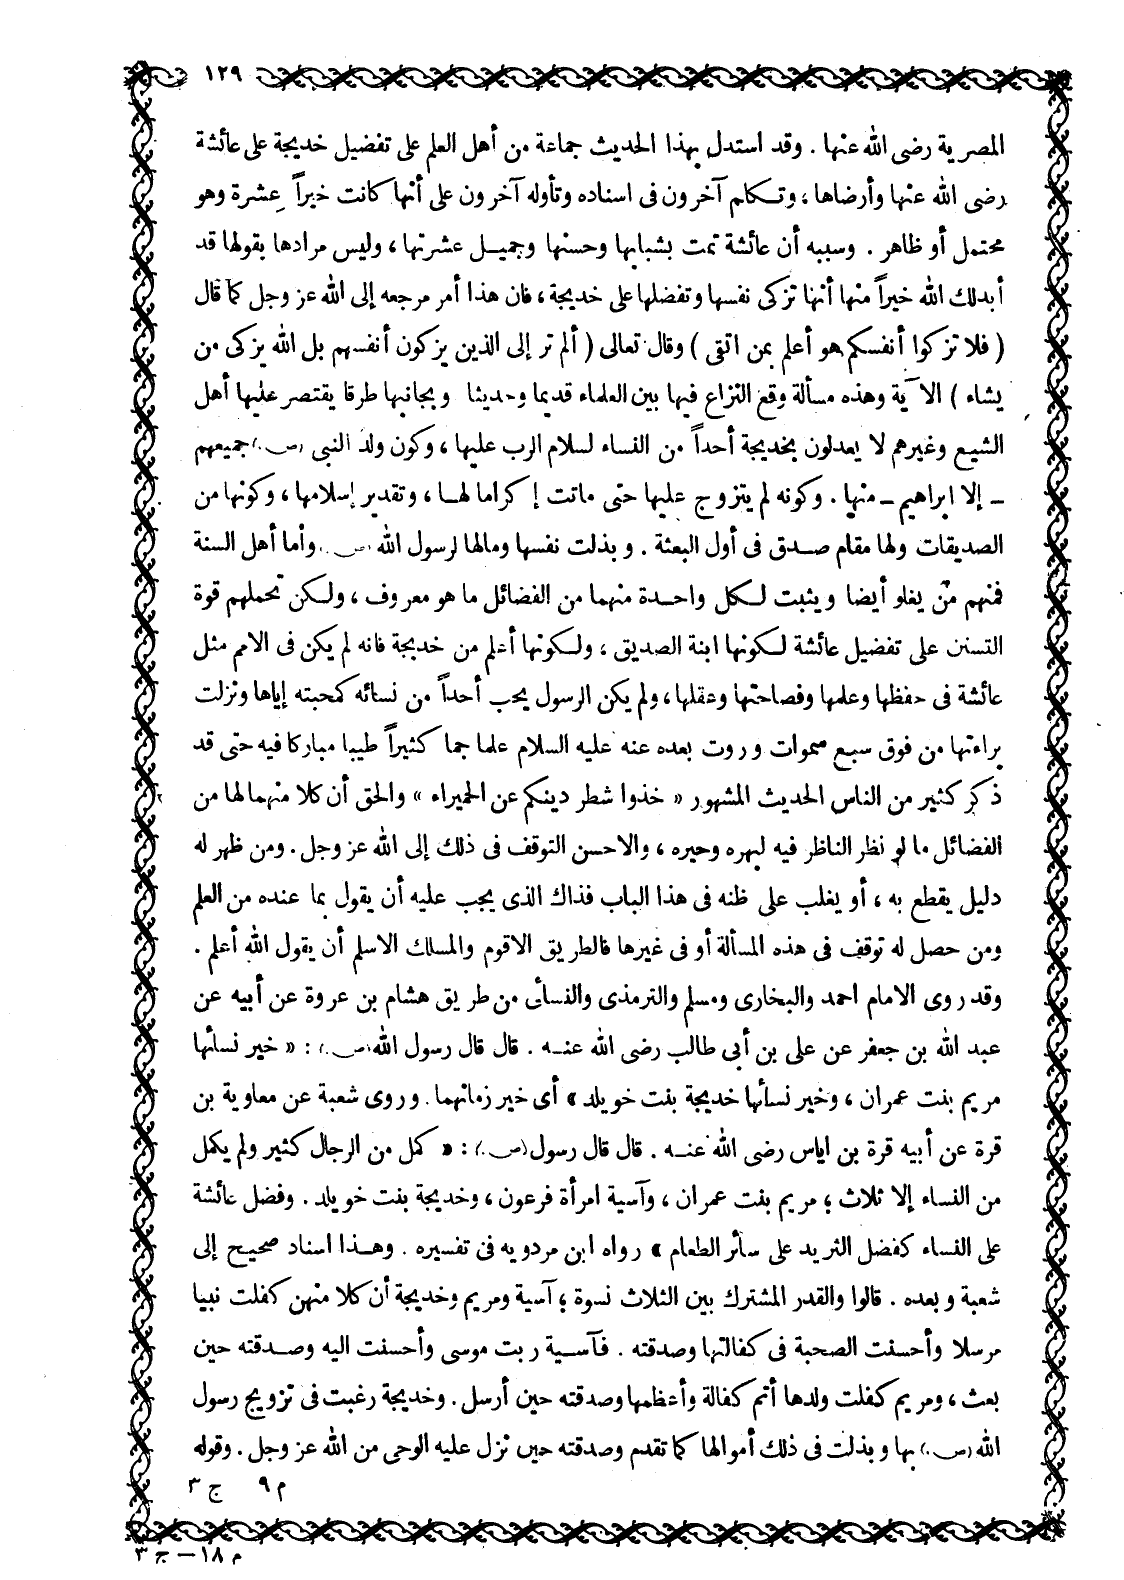 ١٢٩
المصرية رضى الله عنها . وقد استدل بهذا الحديث جماعة من أهل العلم على تفضيل خديجة على عائشة
رضى الله عنها وأرضاها ، وتكلم آخرون فى اسناده وتأوله آخرون على أنها كانت خيراً عشرة وهو
محتمل أو ظاهر . وسببه أن عائشة تمت بشبابها وحسنها وجميل عشرتها ، وليس مرادها بقولها قد
أبدلك الله خيراً منها أنها تزكى نفسها وتفضلها على خديجة ، فان هذا أمر مرجعه إلى الله عز وجل كما قال
( فلا تزكوا أنفسكم هو أعلم بمن اتقى ) وقال تعالى ( ألم تر إلى الذين يزكون أنفسهم بل الله يزكى من
يشاء ) الآية وهذه مسألة وقع النزاع فيها بين العلماء قديما وحديثا وبجانبها طرقا يقتصر عليها أهل
الشيع وغيرهم لا يعدلون بخديجة أحداً من النساء لسلام الرب عليها ، وكون ولد النبى (ص) جميعهم
ـ إلا ابراهيم ـ منها . وكونه لم يتزوج عليها حتى ماتت إكراما لها ، وتقدير إسلامها ، وكونها من
الصديقات ولها مقام صدق فى أول البعثة . وبذلت نفسها ومالها لرسول الله (ص) . وأما أهل السنة
فمنهم من يغلو أيضا ويثبت لكل واحدة منهما من الفضائل ما هو معروف ، ولكن تحملهم قوة
التسنن على تفضيل عائشة لكونها ابنة الصديق ، ولكونها أعلم من خديجة فانه لم يكن فى الامم مثل
عائشة فى حفظها وعلمها وفصاحتها وعقلها ، ولم يكن الرسول يحب أحداً من نسائه كمحبته إياها ونزلت
براءتها من فوق سبع سموات وروت بعده عنه عليه السلام علما جما كثيراً طيبا مباركا فيه حتى قد
ذكر كثير من الناس الحديث المشهور « خذوا شطر دينكم عن الحميراء » والحق أن كلا منهما لها من
الفضائل ما لو نظر الناظر فيه لبهره وحيره ، والاحسن التوقف فى ذلك إلى الله عز وجل . ومن ظهر له
دليل يقطع به ، أو يغلب على ظنه فى هذا الباب فذاك الذى يجب عليه أن يقول بما عنده من العلم
ومن حصل له توقف فى هذه المسألة أو فى غيرها فالطريق الاقوم والمسلك الاسلم أن يقول الله أعلم .
وقد روى الامام احمد والبخارى ومسلم والترمذى والنسأى من طريق هشام بن عروة عن أبيه عن
عبد الله بن جعفر عن على بن أبي طالب رضى الله عنه . قال قال رسول الله (ص) : « خير نسأتها
مريم بنت عمران ، وخير نسأتها خديجة بنت خويلد » أى خير زمانهما . وروى شعبة عن معاوية بن
قرة عن أبيه قرة بن اياس رضى الله عنه . قال قال رسول (ص) : « كمل من الرجال كثير ولم يكمل
من النساء إلا ثلاث ؛ مريم بنت عمران ، وآسية امرأة فرعون ، وخديجة بنت خويلد . وفضل عائشة
على النساء كفضل الثريد على سائر الطعام » رواه ابن مردويه فى تفسيره . وهذا اسناد صحيح إلى
شعبة وبعده . قالوا والقدر المشترك بين الثلاث نسوة ؛ آسية ومريم وخديجة أن كلا منهن كفلت نبيا
مرسلا وأحسنت الصحبة فى كفالتها وصدقته . فآسية ربت موسى وأحسنت اليه وصدقته حين
بعث ، ومريم كفلت ولدها أتم كفالة وأعظمها وصدقته حين أرسل . وخديجة رغبت فى تزويج رسول
الله (ص) بها وبذلت فى ذلك أموالها كما تقدم وصدقته حين نزل عليه الوحى من الله عز وجل . وقوله
م ٩ ج ٣
م ١٨ – ج ٣